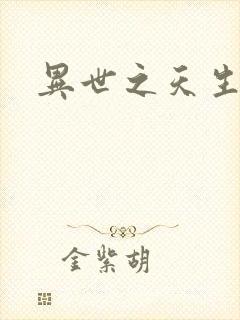 異世之天生
金紫胡